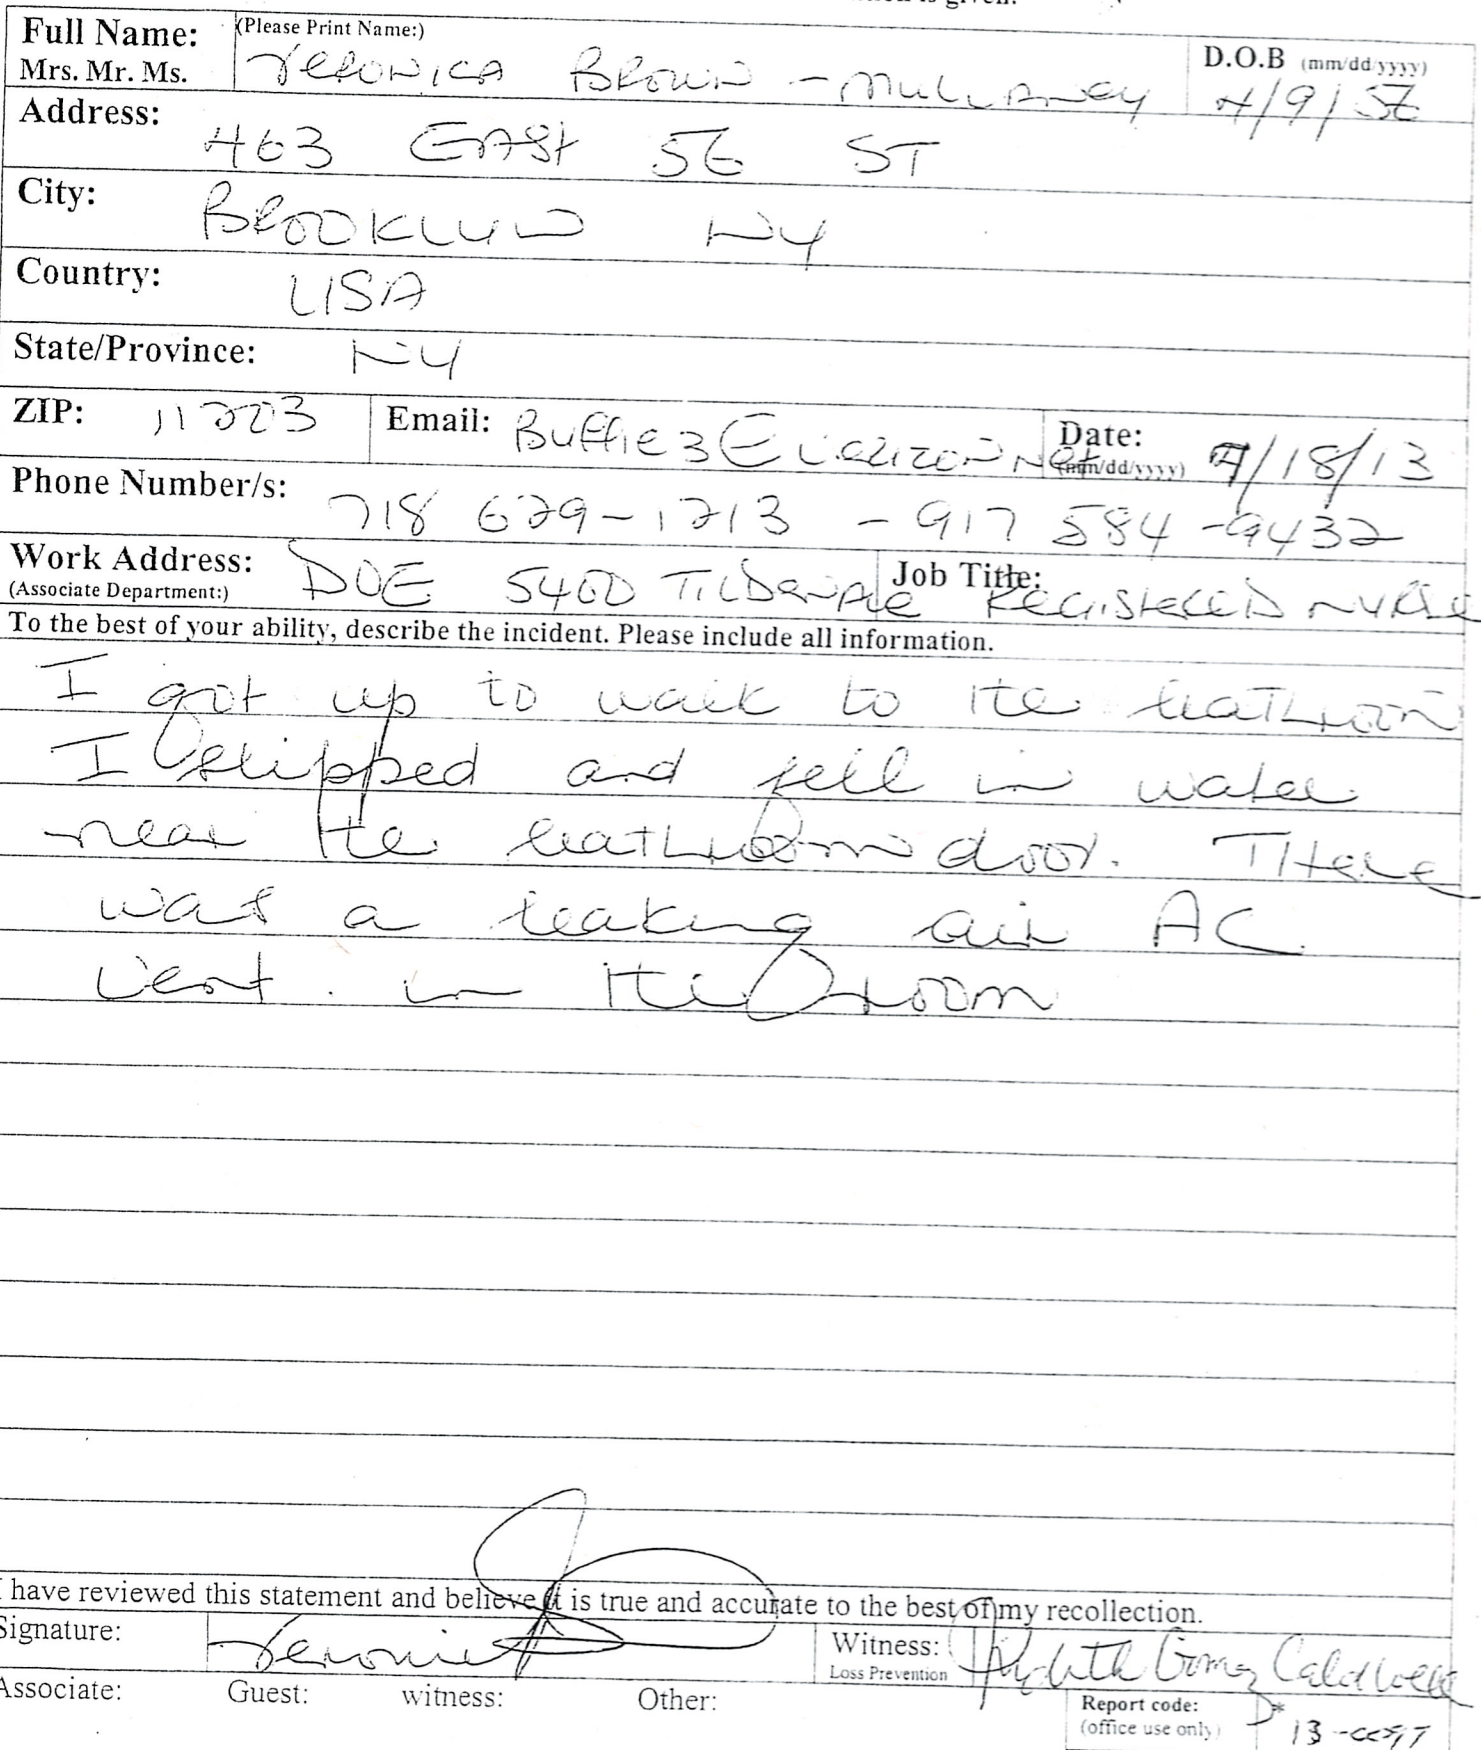 is given.
Full Name: (Please Print Name:) D.O.B (mm/dd/yyyy)
Mrs. Mr. Ms. VERONICA BROWN - MULLANEY 4/9/52
Address: 463 EAST 56 ST
City: BROOKLYN NY
Country: USA
State/Province: NY
ZIP: 11203 Email: Buffie3@verizon.net Date: (mm/dd/yyyy) 7/18/13
Phone Number/s: 718 629-1213 - 917 584-9432
Work Address: DOE 5400 TILDEN Ave Job Title: REGISTERED NURSE
(Associate Department:)
To the best of your ability, describe the incident. Please include all information.
I got up to walk to the bathroom
I slipped and fell in water
near the bathroom door. There
was a leaking air AC
vent. in the room
I have reviewed this statement and believe it is true and accurate to the best of my recollection.
Signature: Veronica Witness: Gomez Caldwell
Loss Prevention
Associate: Guest: witness: Other:
Report code:
(office use only) 13-